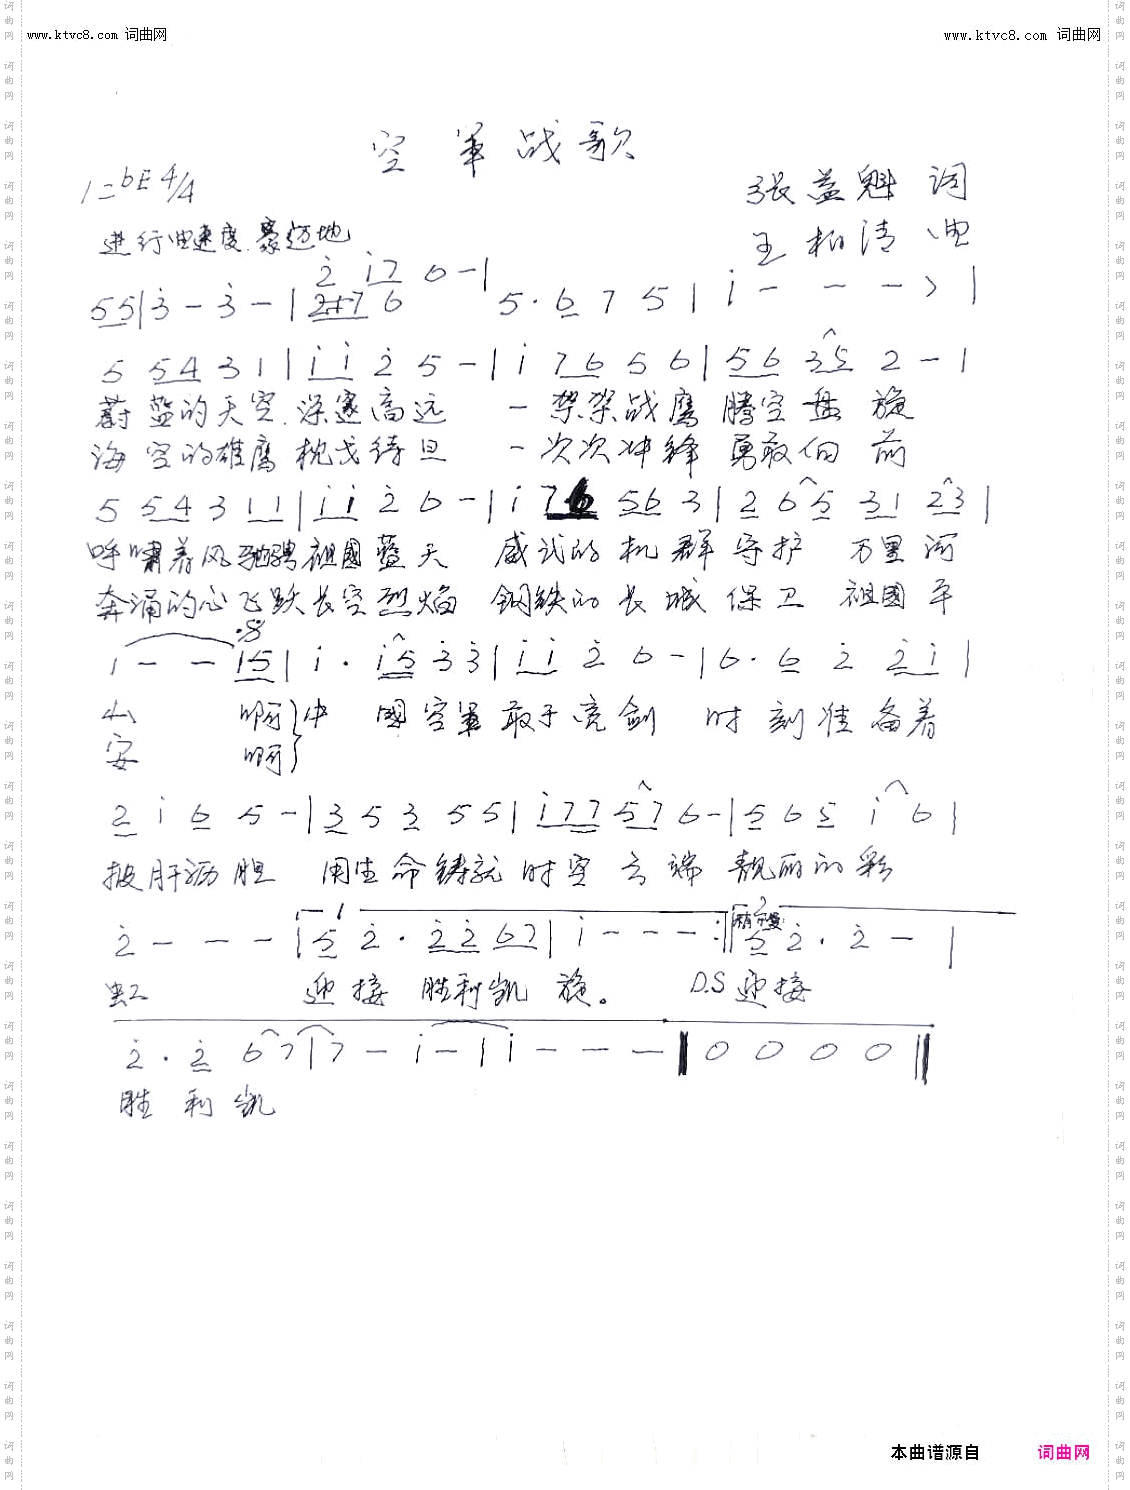 www.ktvc8.com 词曲网 www.ktvc8.com 词曲网
空军战歌
1=bE 4/4
张益魁 词
进行曲速度.豪迈地
王柏清 曲
2 i7 6 -|
55|3 - 3 -|2#76 5·6 7 5|i - - - >|
5 54 3 1|i i 2 5 -|i 76 5 6|56 35 2 -|
蔚蓝的天空.深邃高远 一架架战鹰腾空盘旋
海空的雄鹰枕戈待旦 一次次冲锋勇敢向前
5 54 3 11|i i 2 6 -|i 76 56 3|2 6 5 31 23|
呼啸着风驰骋祖国蓝天 威武的机群守护 万里河
奔涌的心飞跃长空烈焰 钢铁的长城保卫 祖国平
i - - i5|i· i5 3 3|i i 2 6 -|6·6 2 2i|
山 啊}中国空军敢于亮剑 时刻准备着
安 啊}
2 i 6 5 -|3 5 3 5 5|i77 57 6 -|5 6 5 i 6|
披肝沥胆 用生命铸就时空云端 靓丽的彩
2 - - -|1 5 2· 22 67|i - - - :||2 稍慢 5 2· 2 - |
虹 迎接胜利凯旋。 D.S 迎接
2·2 67|7 - i -|i - - -||0 0 0 0||
胜利凯
本曲谱源自 词曲网